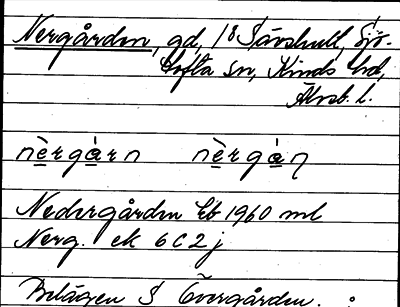 Nergården, gd, 1/8 Sävshult, Sjö-
tofta sn, Kinds hd,
Älvsb. l.
nè̱rgà̱rn nè̱rgà̱ɳ
Nedergården Eb 1960 ml
Nerg. ek 6C2j
Belägen S Övergården.